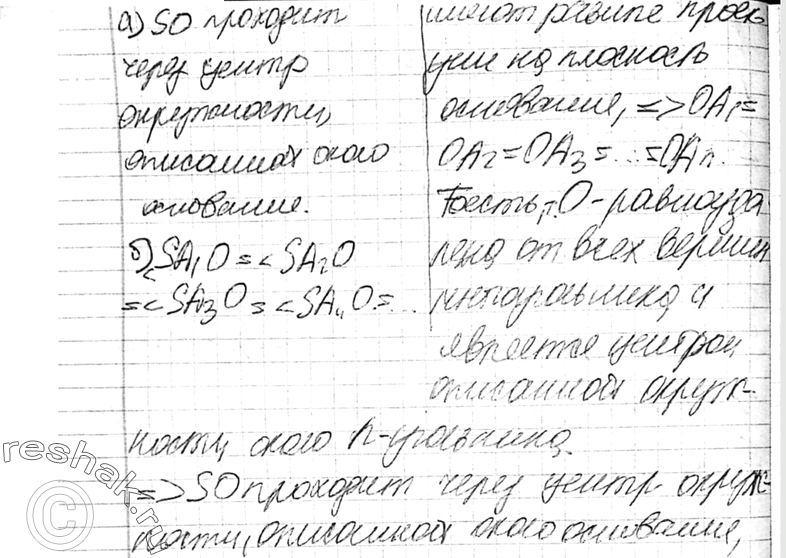 а) SO проходит
через центр
окружности,
описанной около
основание.
б) <SA₁O = <SA₂O
= <SA₃O = <SA₄O = ...
имеют равные проек-
ции на плоскость
основание, => OA₁ =
OA₂ = OA₃ = ... = OAₙ.
То есть, т. O - равноуда
лена от всех вершин
многоугольника и
является центром
описанной окруж-
ности, около n-угольника.
=> SO проходит через центр окруж-
ности, описанной около основание,
reshak.ru
©